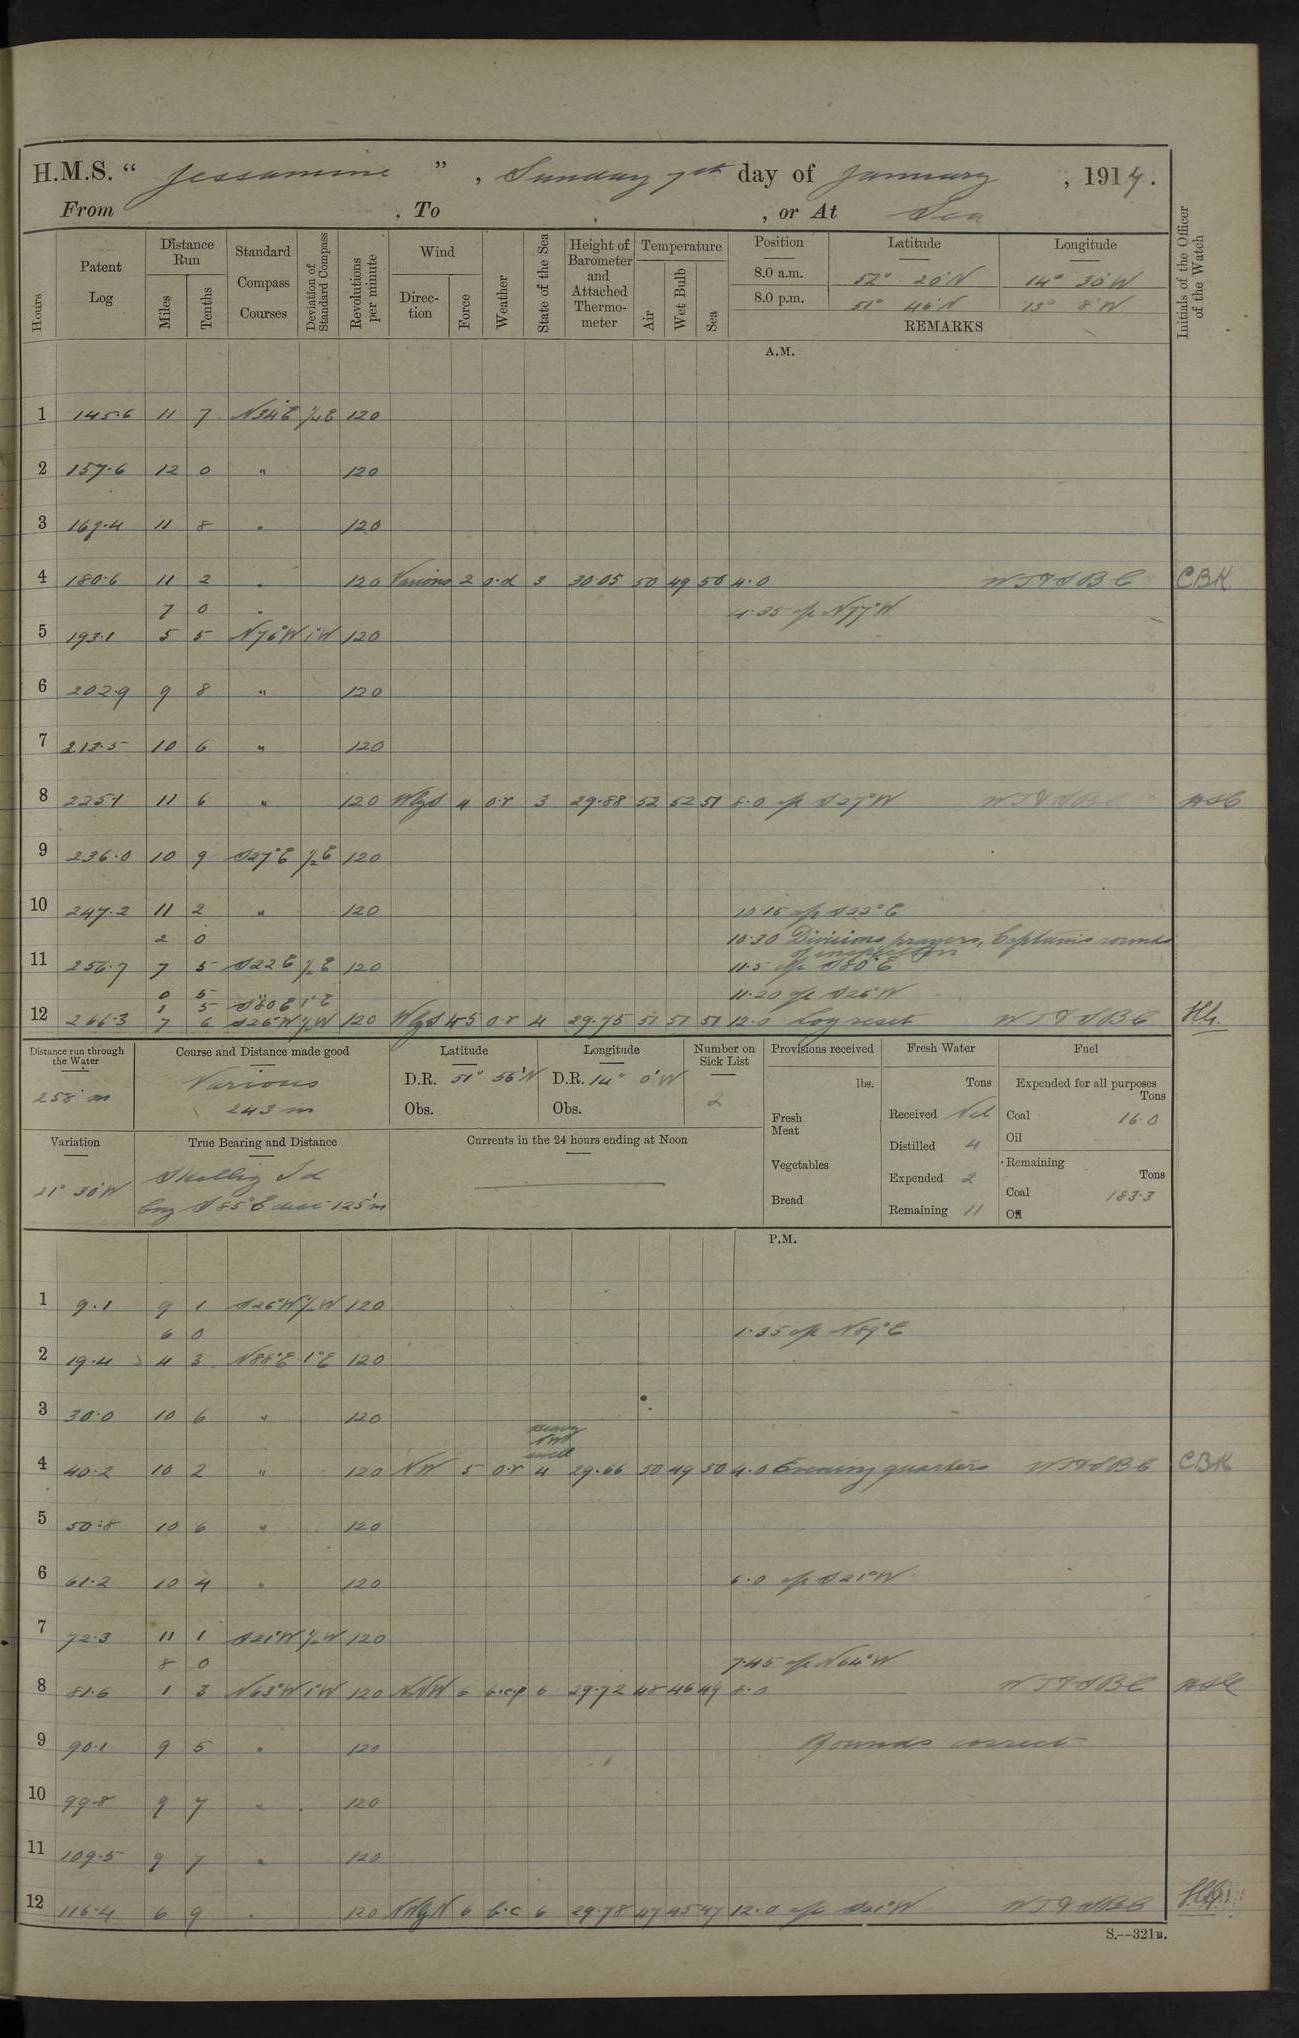 H.M.S. “ Jessamine ” , Sunday 7th day of January , 1917.
From . To , or At Sea
Hours Patent Log Distance Run Miles Tenths Standard Compass Courses Deviation of Standard Compass Revolutions per minute Wind Direction Force Weather State of the Sea Height of Barometer and Attached Thermometer Temperature Air Wet Bulb Sea Position Latitude Longitude Initials of the Officer of the Watch
8.0 a.m. 52° 20'N 14° 30'W
8.0 p.m. 51° 46'N 13° 8'W
REMARKS
A.M.
1 145.6 11 7 N34°E ½E 120
2 157.6 12 0 " 120
3 169.4 11 8 " 120
4 180.6 11 2 " 120 Various 2 o.d 3 30.05 50 49 50 4.0 CBK
7 0 " 4.35 a/c N77°W
5 193.1 5 5 N76°W 1°W 120
6 202.9 9 8 " 120
7 213.5 10 6 " 120
8 225.1 11 6 " 120 WbyS 4 o.r 3 29.88 52 52 51 8.0 a/c S27°W
9 236.0 10 9 S27°E ½E 120
10 247.2 11 2 " 120 10.15 a/c S22°E
2 0 10.30 Divisions, prayers, Captains rounds
of inspection
11 256.7 7 5 S22E ½E 120 11.5 a/c S80°E
0 5 11.20 a/c S26°W
1 5 S80E 1°E
12 266.3 7 6 S26°W ½W 120 WbyS 4.5 o.r 4 29.75 51 51 51 12.0 Log reset
Distance run through the Water Course and Distance made good Latitude Longitude Number on Sick List Provisions received Fresh Water Fuel
258 m Various 243 m D.R. 51° 56'N D.R. 14° 0'W 2 lbs. Tons Expended for all purposes Tons
Obs. Obs. Fresh Meat Received Nil Coal 16.0
Distilled 4 Oil
Variation True Bearing and Distance Currents in the 24 hours ending at Noon Vegetables Expended 2 Remaining Tons
21° 30'W Skellig Id Bread Remaining 11 Coal 183.3
S85°E dist 125'm Oil
P.M.
1 9.1 9 1 S26°W ½W 120
6 0 1.35 a/c N89°E
2 19.4 4 3 N88°E 1°E 120
3 30.0 10 6 " 120
heavy
swell
4 40.2 10 2 " 120 NW 5 o.r 4 29.66 50 49 50 4.0 Evening quarters CBK
5 50.8 10 6 " 120
6 61.2 10 4 " 120 6.0 a/c S21°W
7 72.3 11 1 S21°W ½W 120
8 0 7.45 a/c N64°W
8 81.6 1 3 N63°W 1°W 120 NNW 6 b.c.p 6 29.72 48 46 49 8.0
9 90.1 9 5 " 120 Rounds correct
10 99.8 9 7 " 120
11 109.5 9 7 " 120
12 116.4 6 9 " 120 NWbyN 6 b.c 6 29.78 47 45 47 12.0 a/c S21°W
S.--321B.